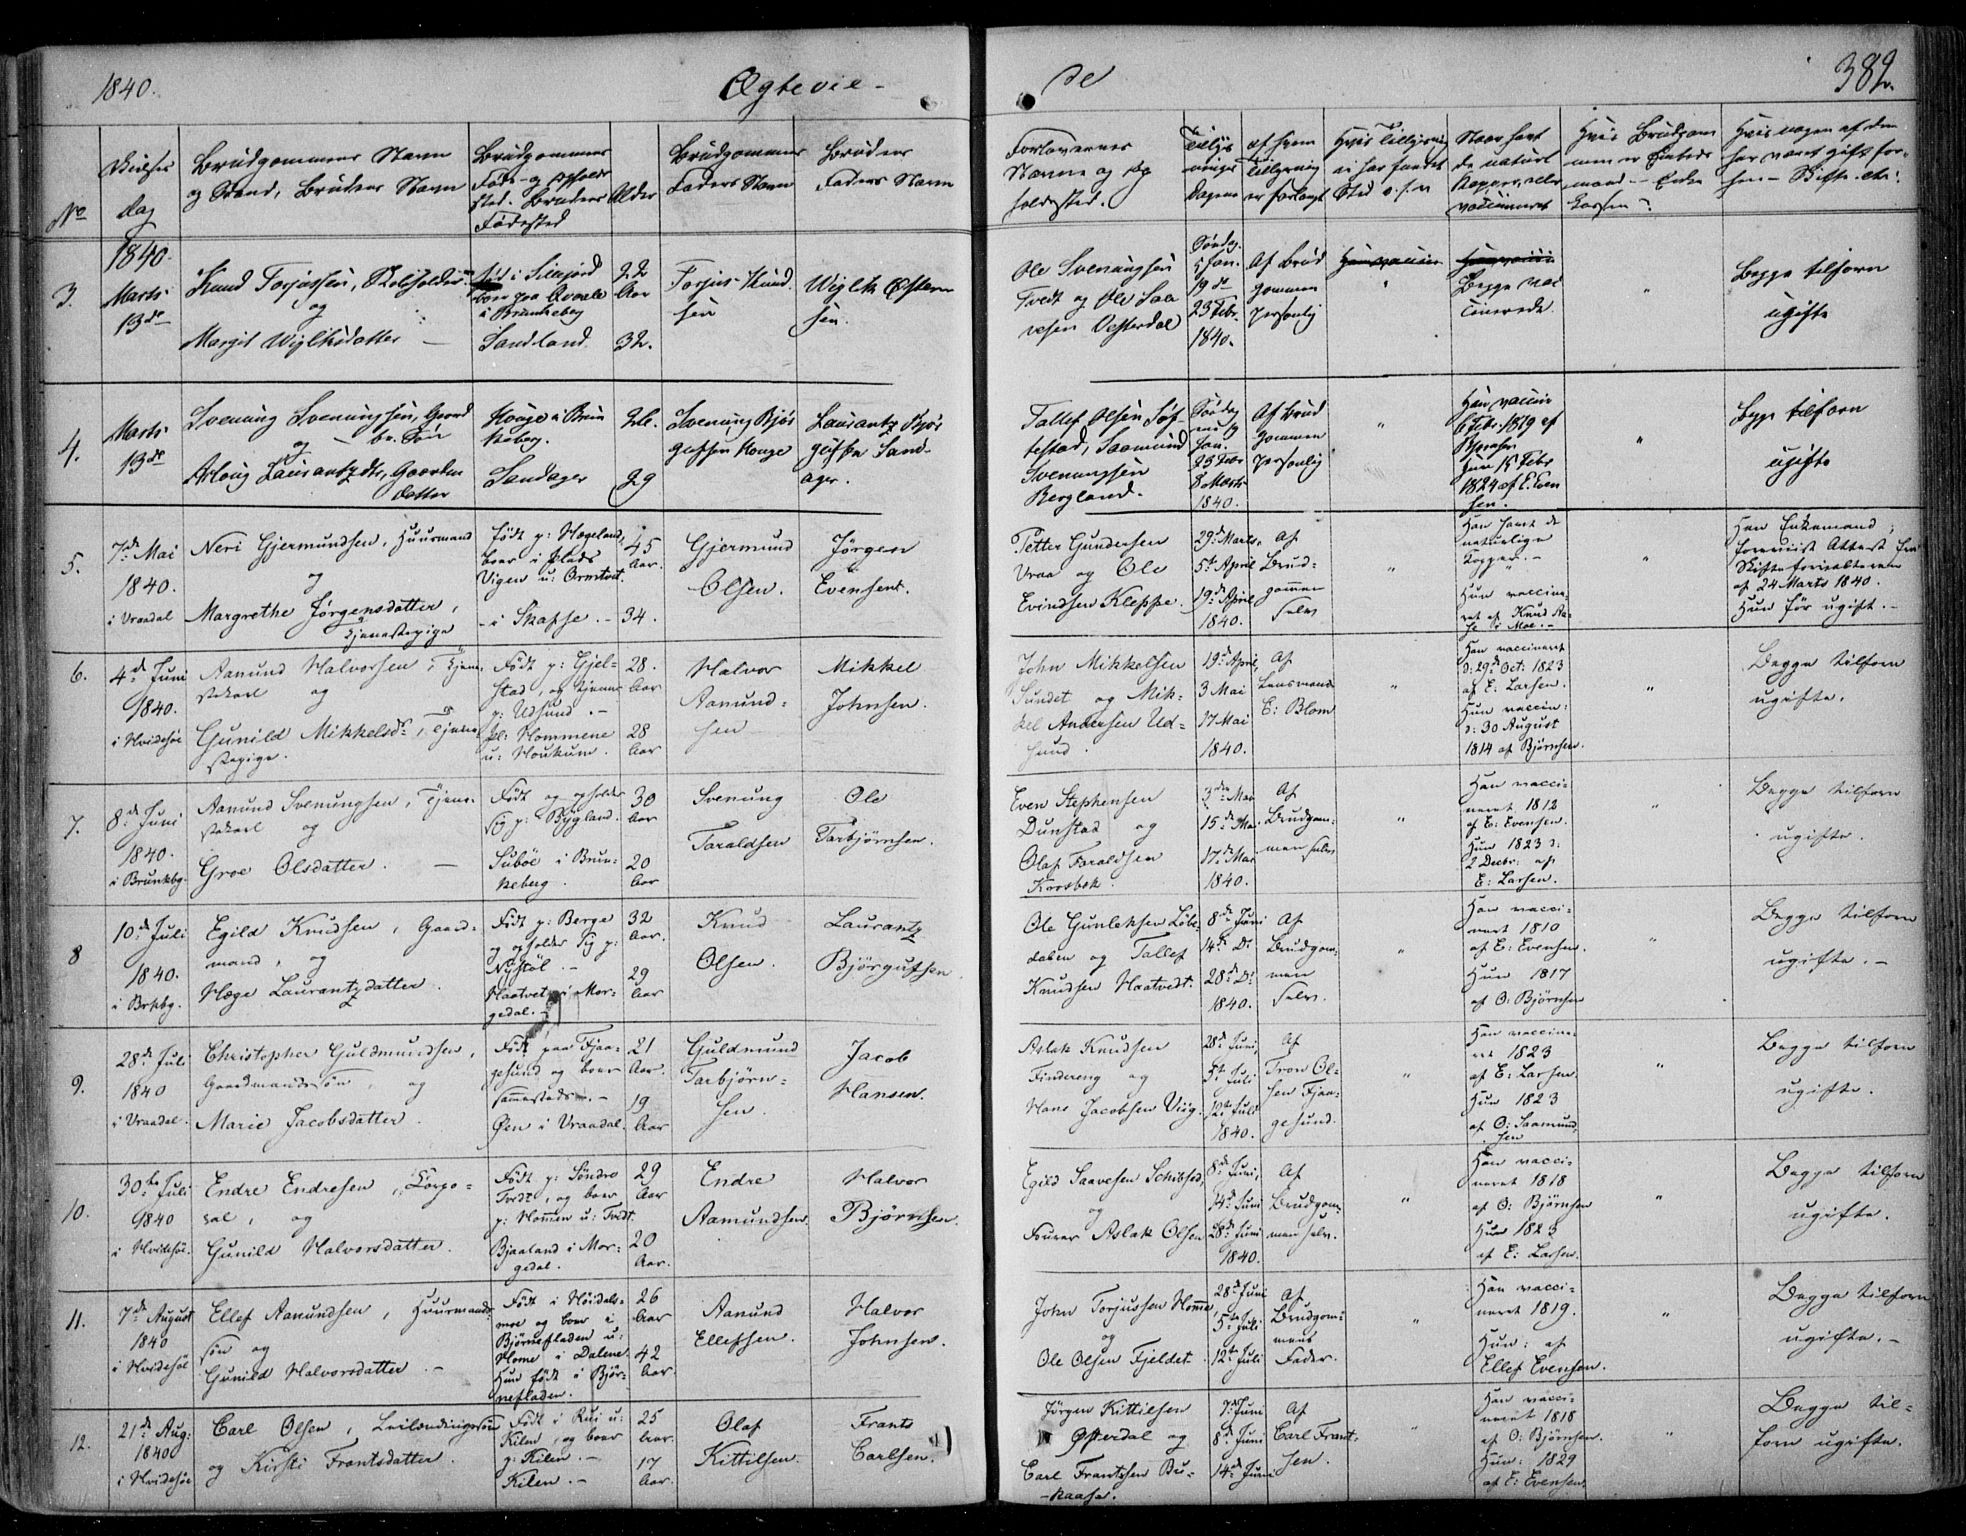 1840.
Ægtevie-
de
382.
No
Vielses Dag
Brudgommens Navn og Stand, Brudens Navn
Brudgommens Føde- og Opholdssted. Brudens Fødested
Alder
Brudgommens Faders Navn
Brudens Faders Navn
Forlovernes Navne og Opholdssted.
Tillysnings Dagene
Af hvem Tillysning er forlangt
Naar havt de naturl. Kopper, eller vaccineret
3.
1840.
Marts
13de
Knud Torjussen,
og
Margit Wiglksdatter
Sandland
22 Aar
32.
Torjus Knudsen
Ole Svenungsen
Tvedt og Ole Saavesen Vesterdal
Søndag
5 Jan.
19de
23 Febr.
1840.
Af Brudgommen personlig
Begge vaccinerede.
"
Begge tilforn
ugifte
4.
Marts
13de
Svenung Svenungsen,
og
Asloug Laurantzdtr, Gaardm. datter
Houge i Brunkeberg.
Sandager
29
Svenung Bjørgufsen Houge
Laurantz Bjørgufsen Sandager.
Tallef Olsen Søftestad, Saamund
Svenungsen
Bergland.
23 Febr
8 Marts
1840.
Af Brudgommen personlig
"
Begge tilforn
ugifte
5.
7de Mai
1840.
i Vraadal
Neri Gjermundsen, Huusmand
og
Margrethe Jørgensdatter,
Tjenestepige
Født p: Hegeland,
boer i Plads
Vigen u: Ormtvet.
- i Skafse. -
45 Aar.
34.
Gjermund
Olsen.
Jørgen
Evensen.
Petter Gundersen
Vraa og Ole
Evindsen Kleppe.
29de Marts,
5te April
19de April
1840.
Af Brudgommen selv
"
Han havt de
naturlige
Kopper. -
Hun vaccineret af Knud
i Moe. -
"
Han Enkemand,
foreviist Attest fra
Skifteforvalteren
af 24 Marts 1840.
Hun før ugift. -
6.
4de Juni
1840.
i Hvidesøe
Aanund Halvorsen, Tjenestekarl og
Gunild Mikkelsdr, Tjenestepige.
Født p: Gjelstad, og tjener
p: Udsund. -
pl: Hommene
u: Houkum.
28. Aar
28 Aar
Halvor
Aanundsen
Mikkel
Johnsen.
John Mikkelsen
Sundet og Mikkel Andersen Udsund.
19de April,
3 Mai
17 Mai
1840.
Af
Lensmand
E: Blom
"
Han vaccineret
d: 29de Oct: 1823
af E: Larsen.
Hun vaccin:
d: 30 August
1814 af Bjørnsen.
"
Begge tilforn
ugifte.
7.
8de Juni
1840.
i Brunkbg.
Aanund Svenungsen, Tjenestekarl og
Groe Olsdatter.
Født og opholder
sig p: Bygland.
Subøe i Brunkeberg.
30 Aar
20 Aar
Svenung
Taraldsen
Ole
Tarbjørnsen.
Even Stephensen
Dunstad og
Olaf Taraldsen
Korsbek.
3de Mai
15de Mai
17de Mai
1840.
Af
Brudgommen selv
"
Han vaccineret 1812
af E: Evensen.
Hun 1823 d:
2 Decbr: af
E: Larsen.
"
Begge tilforn
ugifte.
8
10de Juli
1840.
i Brkbg.
Egild Knudsen, Gaardmand, og
Hæge Laurantzdatter.
Født p: Berge
og opholder sig p:
Nystøl. -
Haatvet i Morgedal. -
32 Aar.
29 Aar
Knud
Olsen.
Laurantz
Bjørgufsen.
Ole Gunleksen Løbedalen og Tallef
Knudsen Haatvedt.
8de Juni
14de D:
28de D:
1840.
Af
Brudgommen
selv.
"
Han vaccineret 1810
af E: Evensen.
Hun 1817
af O: Bjørnsen
"
Begge tilforn
ugifte. -
9.
28de Juli
1840
i Vraadal.
Christopher Guldmundsen,
Gaardmandssøn, og
Marie Jacobsdatter.
Født paa Fjaagesund og boer
sammesteds. -
Øen i Vraadal.
21 Aar.
19 Aar
Guldmund
Tarbjørnsen.
Jacob
Hansen.
Aslak Knudsen
Findereng og
Hans Jacobsen Viig.
28de Juni,
5te Juli
12te Juli
1840.
Af
Tron Olsen Fjaagesund.
"
Han vaccineret 1823
af E: Larsen.
Hun 1823
af O: Saamundsen
"
Begge tilforn
ugifte.
10.
30te Juli
1840
i Hvidesøe.
Endre Endresen, Corporal, og
Gunild Halvorsdatter.
Født p: Søndre
Tvedt, og boer
p: Homen u: Tvedt.
Bjaaland i Morgedal.
29 Aar
20 Aar.
Endre
Aamundsen.
Halvor
Bjørnsen.
Egild Saavesen Schibsted,
og
Aslak Olsen
8de Juni,
14de Juni
28de Juni
1840.
Af
Brudgommen selv.
"
Han vaccineret 1818
af O: Bjørnsen
Hun 1823
af E: Larsen.
"
Begge tilforn
ugifte.
11.
7de August
1840
i Hvidesøe
Ellef Aanundsen, Huusmandssøn og
Gunild Halvorsdatter. -
Født i Høidalsmoe og boer i
Bjørnefladen u:
Home i Dalene.
Hun født i Bjørnefladen.
26 Aar
42 Aar.
Aanund
Ellefsen.
Halvor
Johnsen.
John Torjussen Homme,
og
Ole Olsen Fjeldet.
28de Juni
5te Juli
12te Juli
Af
Brudgommens
Fader.
"
Han vaccineret 1819.
Hun: af
Ellef Evensen.
"
Begge tilforn
ugifte. -
12.
21de Aug:
1840
i Hvidesøe
Carl Olsen, Leilendingssøn
og Kirsti Frantsdatter.
Født i Rui u:
Kilen, og boer
p: Kilen. -
Kilen. -
25 Aar.
17 Aar.
Olaf
Kittilsen.
Frants
Carlsen.
Jørgen Kittilsen
Østerdal og
Carl Frantzsen Bukaasa.
7de Juni
8de Juni
14de Juni
Af
Carl Frantsen.
"
Han vaccineret 1818
af O: Bjørnsen.
Hun: 1829
af E: Evensen.
"
Begge tilforn ugifte.